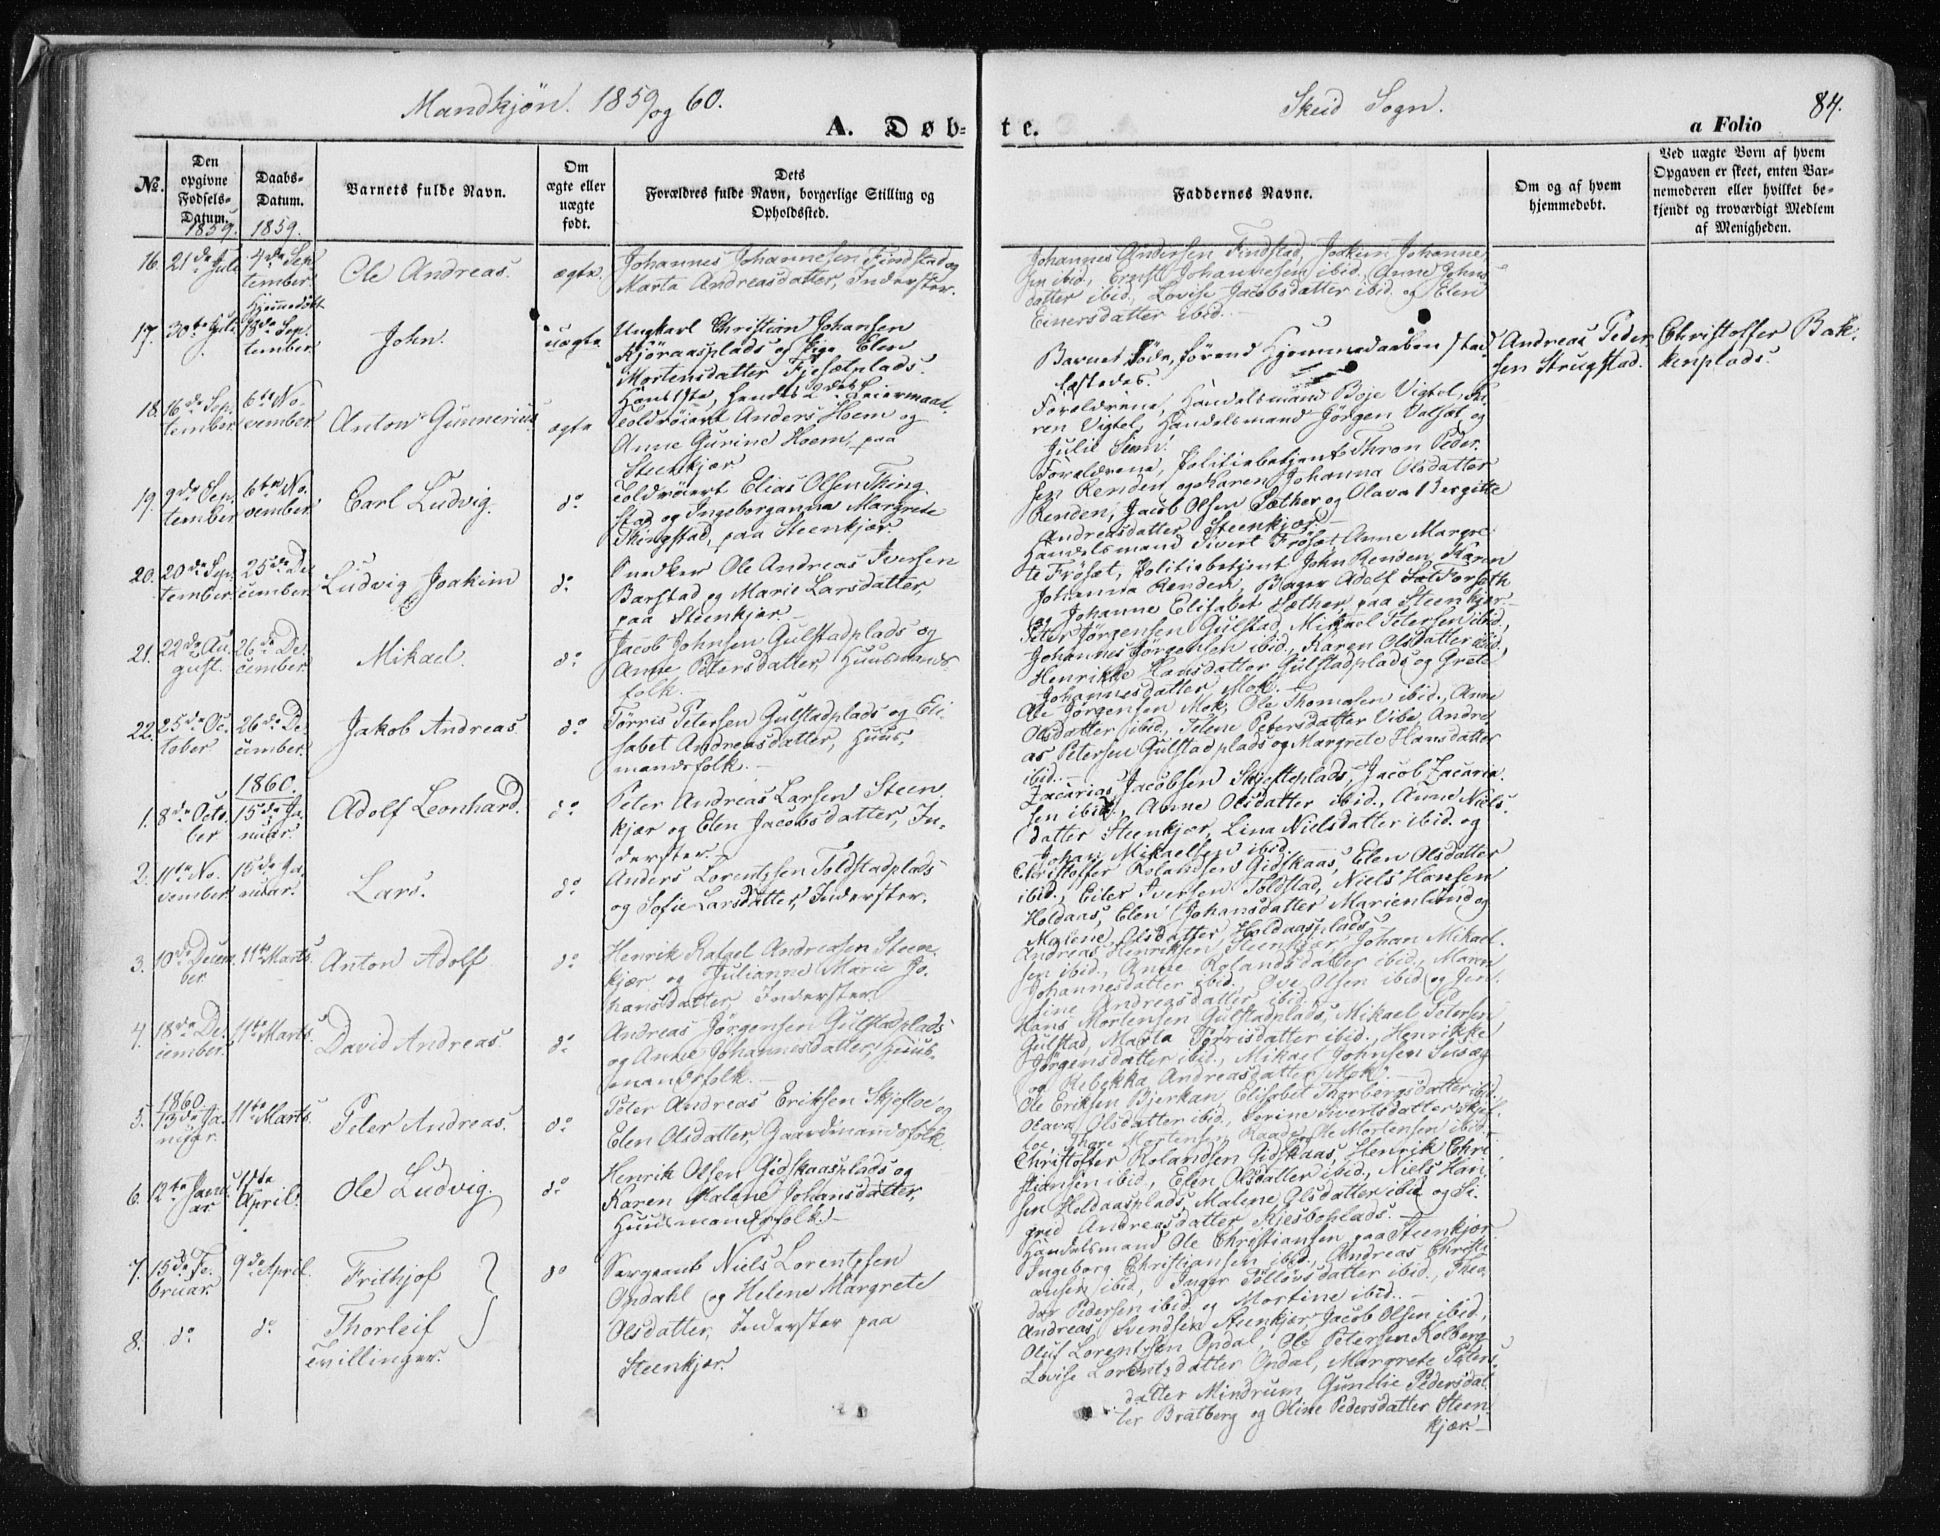 Mandkjøn. 1859 og 60.
Skeid Sogn.
84.
A. Døb-
te.
a Folio
No.
Den opgivne Fødsels-Datum.
Daabs-Datum.
Barnets fulde Navn.
Om ægte eller uægte født.
Dets Forældres fulde Navn, borgerlige Stilling og Opholdssted.
Faddernes Navne.
Om og af hvem hjemmedøbt.
Ved uægte Born af hvem Opgaven er skeet, enten Barnemoderen eller hvilket bekjendt og troværdigt Medlem af Menigheden.
1859.
1859.
16. 21de Juli 4de September. Ole Andreas. ægte.
Johannes Johannesen Findstad og
Marta Andreasdatter, Inderster.
Johannes Andersen Findstad, Joakim Johanne-
sen ibid., Ernst Johannesen ibid., Anne Johns-
datter ibid., Lovise Jacobsdatter ibid. og Elen
Einersdatter ibid. –
17. 30te Juli Hjemmedøbt 18de September. John. uægte
Ungkarl Christian Johansen
Kjøraasplads og Pige Elen
Mortensdatter Fjesetplads.
Hans 1ste, hendes 2det Leiermaal.
Barnet døde, førend Hjemmedaaben stad-
fæstedes.
Andreas Peder-
sen Strugstad.
Christoffer Bak-
kenplads.
18. 16de September 6te November Anton Gunnerius ægte
Toldrøient Anders Hoem og
Anne Gurine Hoem, paa
Steenkjær
Forældrene, Handelsmand Boje Vigtel,
ren Vigtel, Handelsmand Jörgen Valsæt og
Julie Sem.
19. 9de September 6te November. Carl Ludvig. do
Toldrøiert Elias Olsen Thing-
stad og Ingeborganna Margrete
Thingstad, paa Steenkjær
Forældrene, Politiebetjent Thron Peder-
sen Renden og Karen Johanna Olsdatter
Renden, Jacob Olsen Sæther og Olava Bergitte
Andreasdatter Steenkjær. –
20. 20de September 25de December. Ludvig Joakim do.
Snedker Ole Andreas Iversen
Barstad og Marie Larsdatter,
paa Steenkjær. –
Handelsmand Sivert Frösæt, Anne Margre-
te Frösæt, Politiebetjent John Renden, Karen
Johanna Renden, Bager Adolf Forseth
og Johanne Elisabet Sæther, paa Steenkjær. –
21. 22de August. 26de December. Mikael. do
Jacob Johnsen Gulstadplads og
Anne Petersdatter, Huusmands-
folk. –
Peter Jörgensen Gulstad, Mikael Petersen ibid.,
Johannes Jörgensen ibid., Karen Olsdatter ibid.,
Henrikke Hansdatter Gulstadplads og Grete
Johannesdatter Mok. –
22. 25de October 26de December. Jakob Andreas. do
Tørris Petersen Gulstadplads og Eli-
sabet Andreasdatter, Huus-
mandsfolk. –
Ole Jörgensen Mok, Ole Thomasen ibid., Anne
Olsdatter ibid., Telene Petersdatter Vibe, Andre-
as Petersen Gulstadplads og Margrete Hansdatter
ibid. –
1860.
1. 8de October 15de Januar. Adolf Leonhard. do
Peter Andreas Larsen Steen-
kjær og Elen Jacobsdatter, In-
derster. –
Zacarias Jacobsen Skjefteplads, Jacob Zacaria-
sen ibid., Anne Olsdatter ibid., Anne Niels-
datter Steenkjær, Lina Nielsdatter ibid. og
Johan Mikaelsen ibid.
2. 11te November. 15de Januar. Lars. do
Anders Lorentzsen Toldstadplads
og Sofie Larsdatter, Inderster.
Christoffer Rolandsen Gidskaas, Elen Olsdatter
ibid., Eiler Iversen Toldstad, Niels Hansen
Holdaas, Elen Johansdatter Marienlund og
Malene Olsdatter Holdaasplads. –
3. 10de December 11te Marts Anton Adolf. do
Henrik Rafael Andreasen Steen-
kjær og Julianne Marie Jo-
hansdatter, Inderster.
Andreas Henriksen Steenkjær, Johan Mikael-
sen ibid., Anne Rolandsdatter ibid., Maren
Johannesdatter ibid., Ove Olsen ibid. og Jen-
sine Andreasdatter ibid. –
4. 18de December. 11te Marts. David Andreas. do.
Andreas Jörgensen Gulstadplads
og Anne Johannesdatter, Huus-
mandsfolk. –
Hans Mortensen Gulstadplads, Mikael Petersen
Gulstad, Marta Tørrisdatter ibid., Henrikke
Jörgensdatter ibid., Mikael Johnsen
og Rebekka Andreasdatter Mok. –
5. 1860. 13de Januar. 11te Marts. Peter Andreas. do
Peter Andreas Eriksen Skjeftoe og
Elen Olsdatter, Gaardmandsfolk
Ole Eriksen Bjerkan, Elisabet Thorbergsdatter ibid.
Olava Olsdatter ibid., Serine Sivertsdatter Skjef-
toe, Mortensen Raade, Ole Mortensen ibid. –
6. 12te Januar 17de April. Ole Ludvig. do
Henrik Olsen Gidskaasplads og
Karen Malene Johansdatter,
Huusmandsfolk. –
Christoffer Rolandsen Gidskaas, Henrik Chri-
stiansen ibid., Elen Olsdatter ibid., Niels Han-
sen Holdaasplads, Malene Olsdatter ibid. og Si-
gred Andreasdatter Kjesboplads. –
7. 15de Februar. 9de April. Frithjof do
8. do do Thorleif
Tvillinger.
Sergeant Niels Lorentzsen
Opdahl og Helene Margrete
Olsdatter, Inderster paa
Steenkjær.
Handelsmand Ole Christiansen paa Steenkjær
Ingeborg Christiansen ibid., Andreas Christi-
ansen ibid., Inger Tollevsdatter ibid., Theo-
dor Pedersen ibid. og Mortine ibid. –
Andreas Svendsen Steenkjær, Jacob Olsen ibid.,
Oluf Lorentzsen Opdal, Ole Petersen Kolberg
Lovise Lorentzdatter Opdal, Margrete Peters-
datter Mindrum, Gunelie Pedersdat-
ter Bratberg og Oline Pedersdatter Steen-
kjær. –